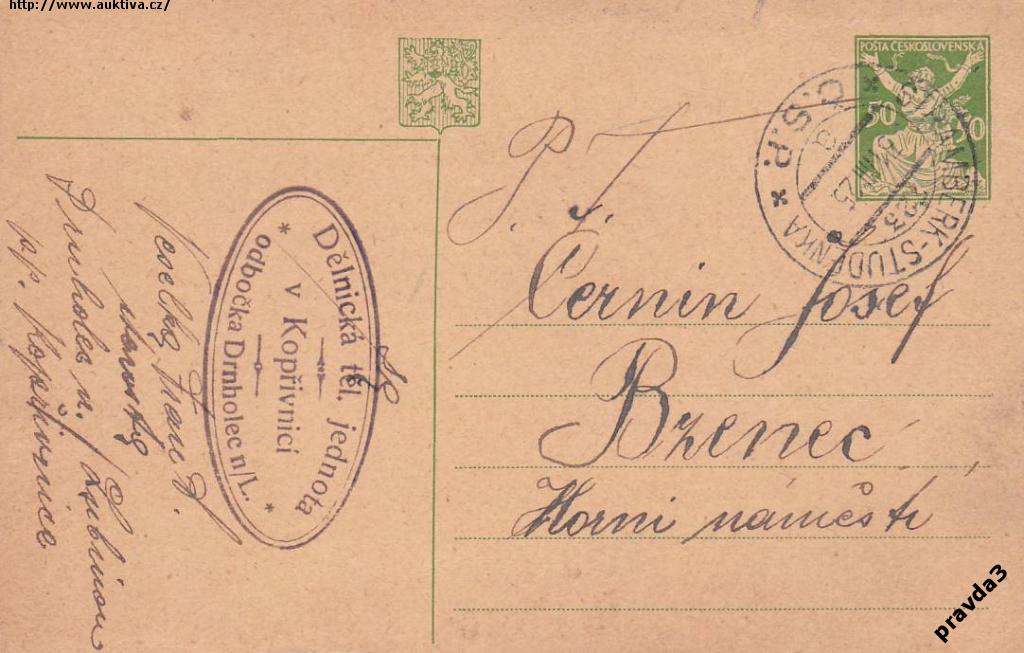 http://www.auktiva.cz/
POŠTA ČESKOSLOVENSKA
50
ŠTRAMBERK-STUDÉNKA
Č.S.P.
P. T.
Černin Josef
Bzenec
Horni náměstí
Dělnická těl. jednota
v Kopřivnici
odbočka Drnholec n/L.
Drnholec n./Lubinou
pp. Kopřivnice
pravda3